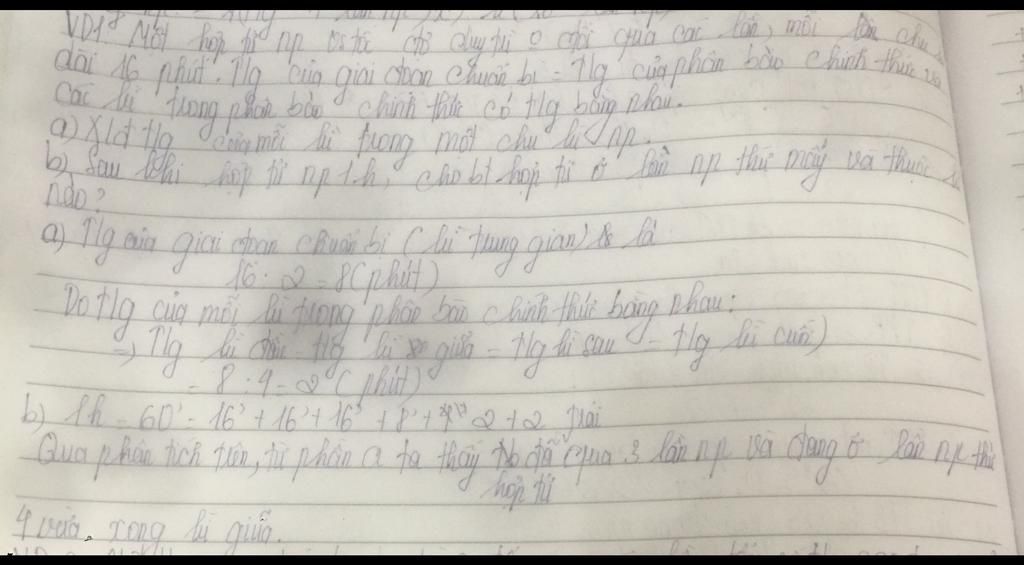 VD1: Một hợp tử np có tốc độ duy trì o đổi qua các lần, mỗi lần chu kì
dài 16 phút. Tlg của giai đoạn chuẩn bị = Tlg của phân bào chính thức và
các kì trong phân bào chính thức có tlg bằng nhau.
a) Xđ tlg của mỗi kì trong một chu kì np.
b) Sau khi hợp tử np 1h, cho bt hợp tử ở lần np thứ mấy và thuộc kì
nào?
a) Tlg của giai đoạn chuẩn bị (kì trung gian) là
16 : 2 = 8 (phút)
Do tlg của mỗi kì trong phân bào chính thức bằng nhau:
=> Tlg kì đầu = tlg kì giữa = tlg kì sau = tlg kì cuối
= 8 : 4 = 2 (phút)
b) 1h = 60' = 16' + 16' + 16' + 8' + 2 + 2
Qua phân tích trên, từ phần a ta thấy đã qua 3 lần np và đang ở lần np thứ
hợp tử
4 vừa xong kì giữa.